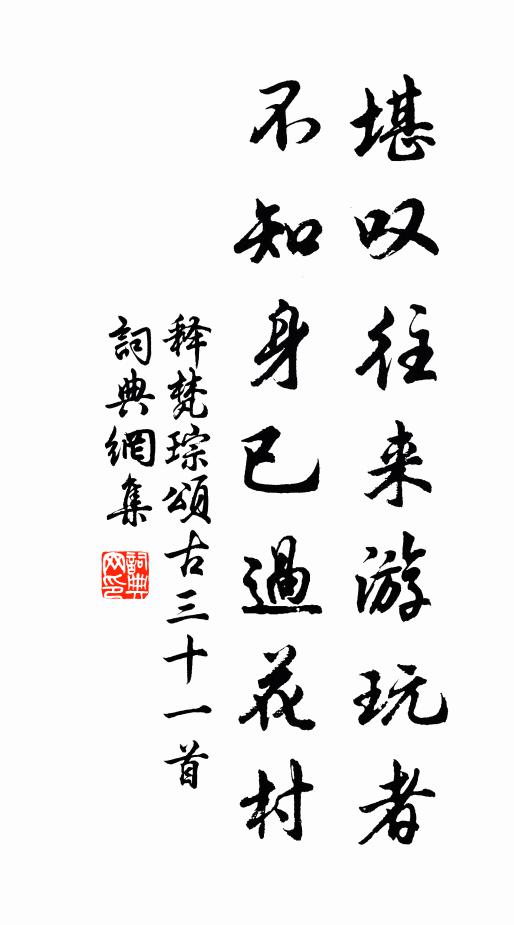 堪叹往来游玩者
不知身已過花村
释梵琮頌古三十一首
詞典網集
詞典網印